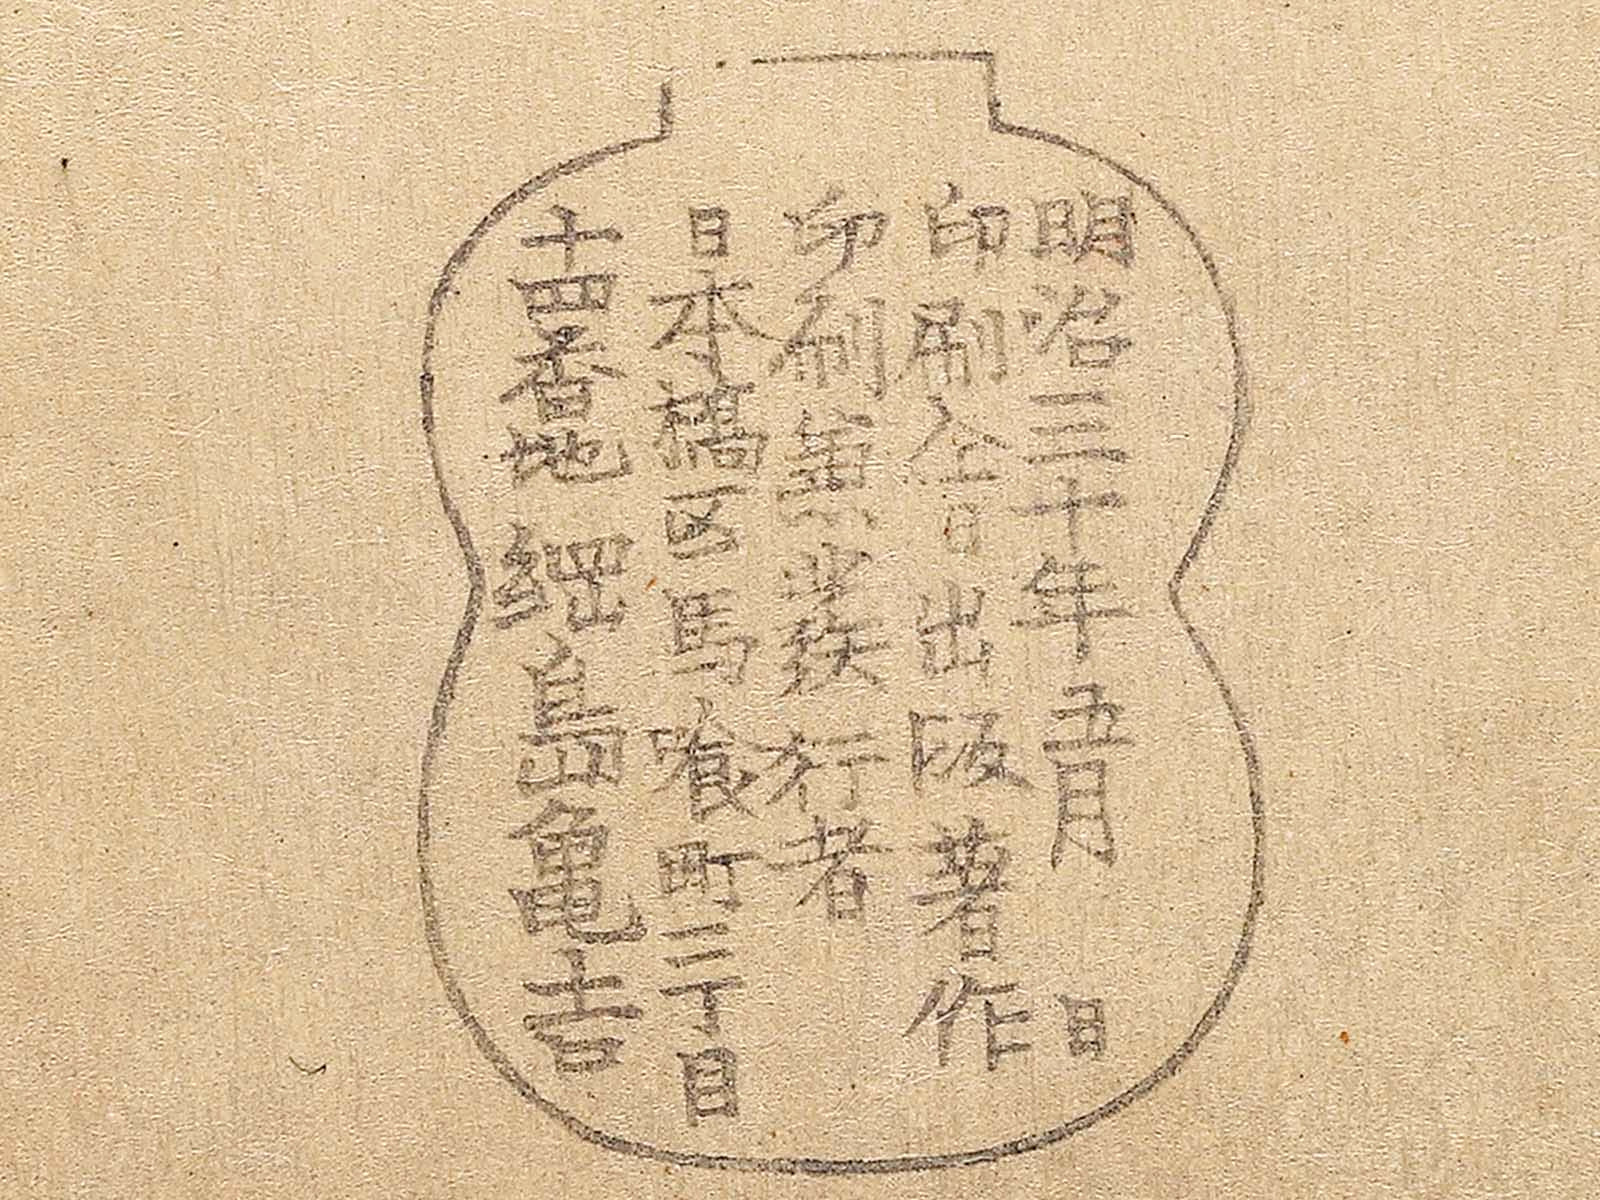 明治三十年五月　日
印刷仝日出版著作
印刷兼発行者
日本橋区馬喰町二丁目
十四番地　綱島亀吉